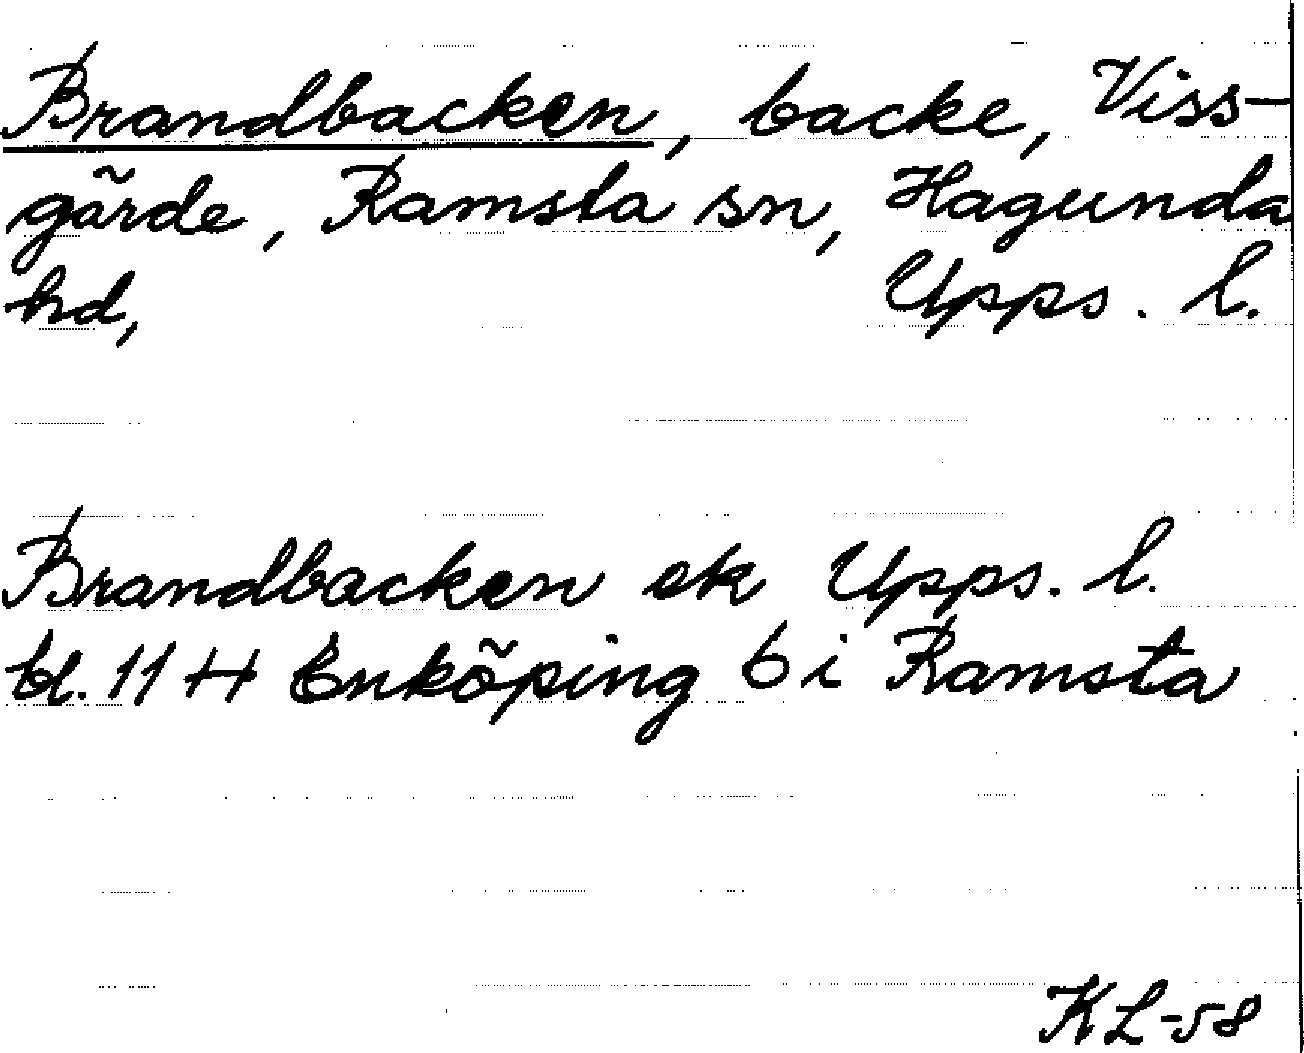 Brandbacken, backe, Viss-
gärde, Ramsta sn, Hagunda
hd, Upps. l.
Brandbacken ek Upps. l.
bl. 11 H Enköping 6 i Ramsta
KL-58